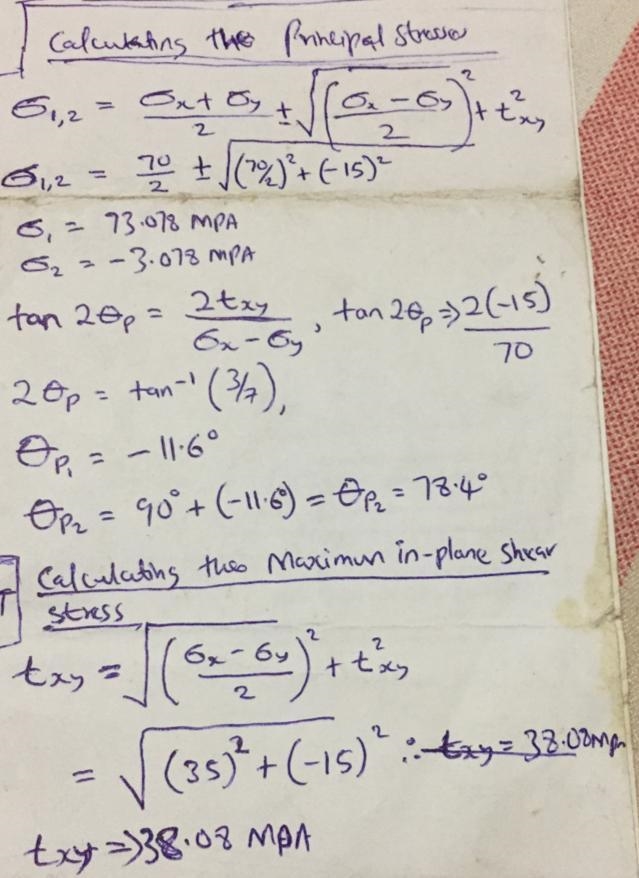 Calculating the Principal stresses
σ1,2 = σx + σy / 2 ± √((σx - σy / 2)² + t²xy
σ1,2 = 70/2 ± √(70/2)² + (-15)²
σ1 = 73.078 MPA
σ2 = -3.078 MPA
tan 2θp = 2txy / σx - σy , tan 2θp ⇒ 2(-15) / 70
2θp = tan⁻¹ (3/7),
θp1 = -11.6°
θp2 = 90° + (-11.6°) = θp2 = 78.4°
Calculating the Maximum in-plane shear
stress
txy = √(σx - σy / 2)² + t²xy
= √(35)² + (-15)² ∴ txy = 38.08mpa
txy ⇒ 38.08 MPA